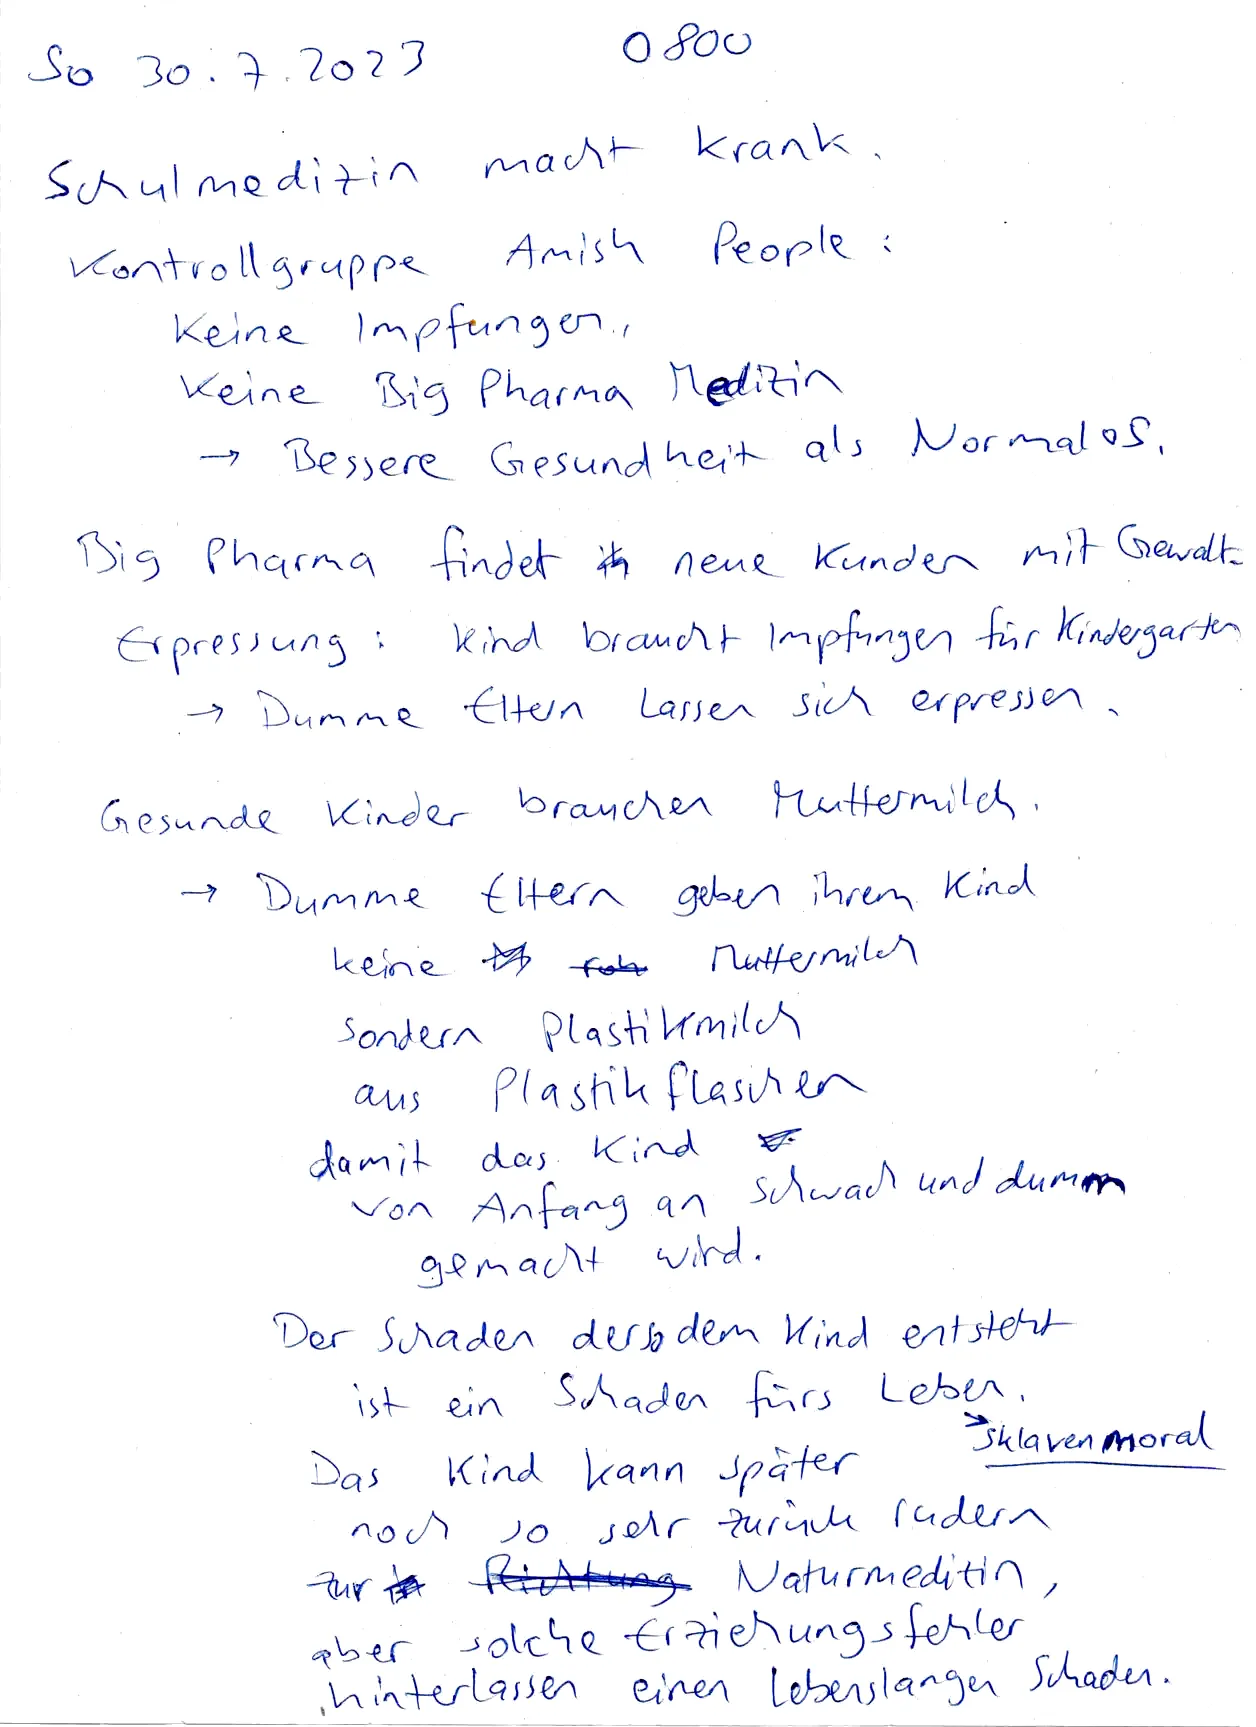 So 30.7.2023 0800
Schulmedizin macht krank.
Kontrollgruppe Amish People:
Keine Impfungen,
Keine Big Pharma Medizin
→ Bessere Gesundheit als Normalos.
Big Pharma findet neue Kunden mit Gewalt-
Erpressung: Kind braucht Impfungen für Kindergarten
→ Dumme Eltern lassen sich erpressen.
Gesunde Kinder brauchen Muttermilch.
→ Dumme Eltern geben ihrem Kind
keine Muttermilch
sondern Plastikmilch
aus Plastikflaschen
damit das Kind
von Anfang an schwach und dumm
gemacht wird.
Der Schaden der so dem Kind entsteht
ist ein Schaden fürs Leben.
→ Sklavenmoral
Das Kind kann später
noch so sehr zurück rudern
zur Naturmedizin,
aber solche Erziehungsfehler
hinterlassen einen lebenslangen Schaden.